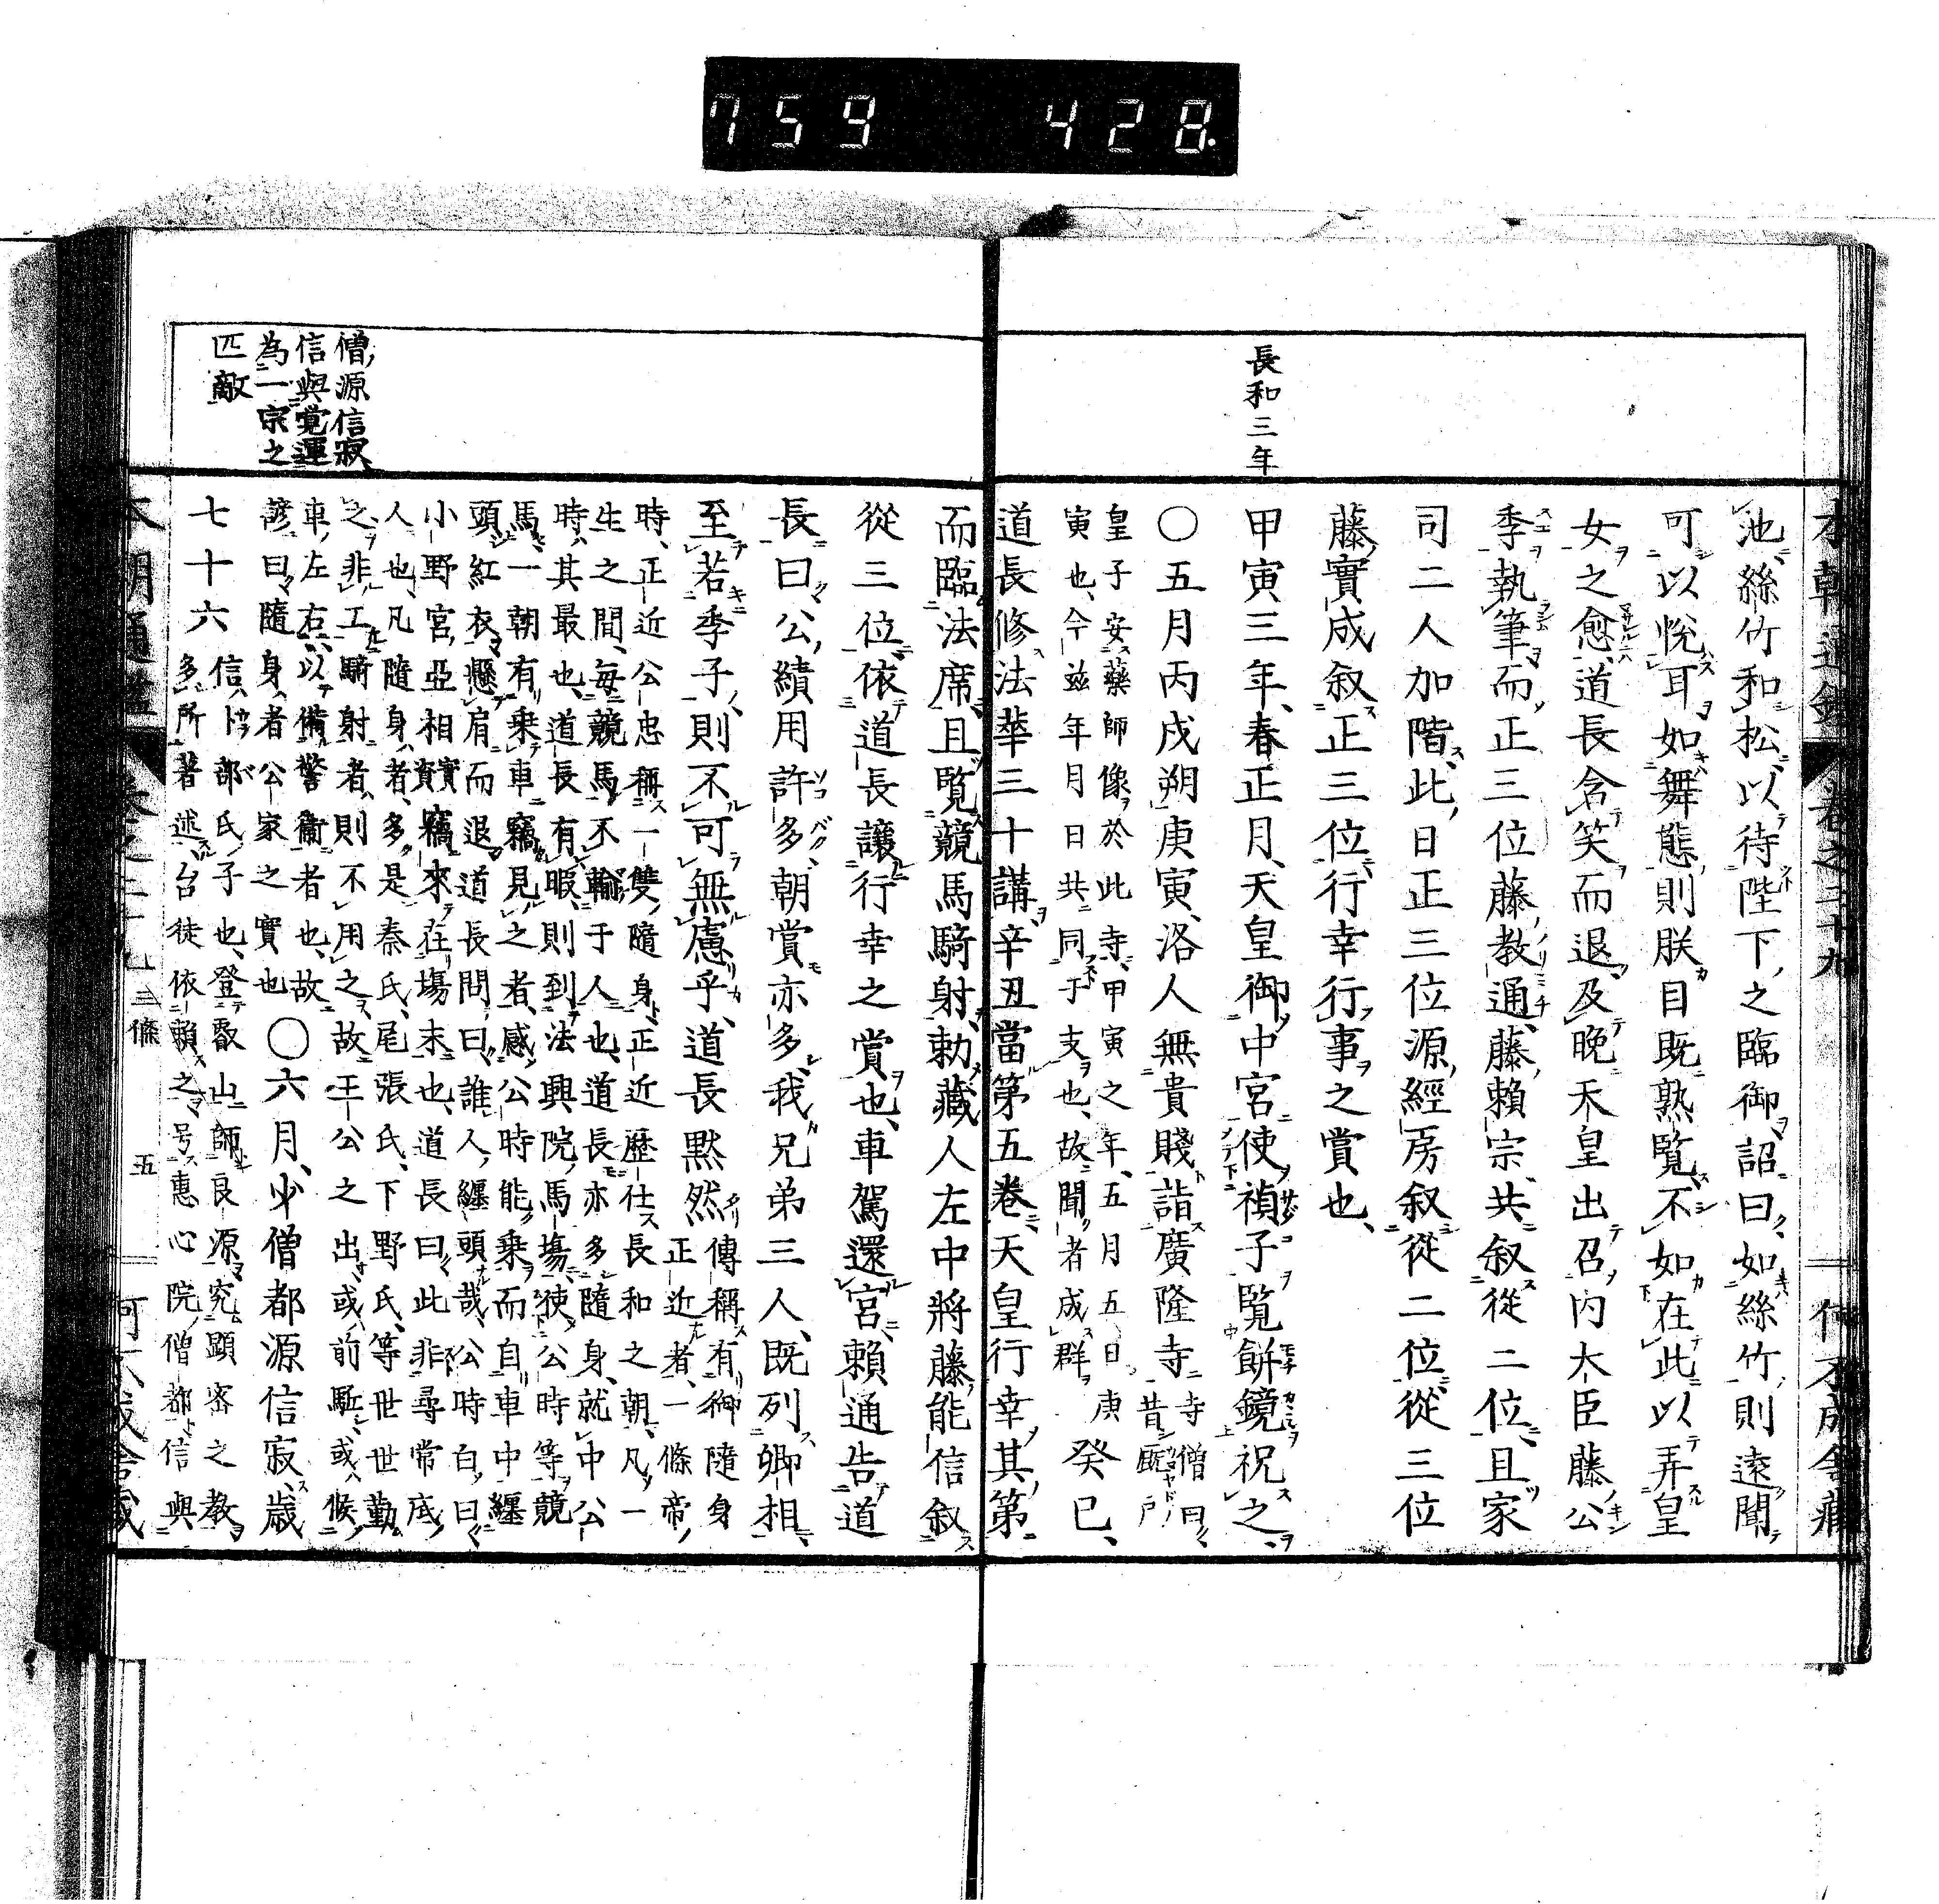 759 428.
本朝通鑑 卷之二十九
長和三年
池絲竹和松以待陛下之臨御詔曰如絲竹則遠聞
可以悅耳如舞態則朕目既熟覽不如在此以弄皇
女之愈道長含笑而退及晚天皇出召內大臣藤公
季執筆而正三位藤教通藤賴宗共叙從二位且家
司二人加階此日正三位源經房叙從二位從三位
藤實成叙正三位行幸行事之賞也
甲寅三年春正月天皇御中宮使禎子覽餅鏡祝之
〇五月丙戌朔庚寅洛人無貴賤詣廣隆寺寺僧曰昔廐戶
皇子安藥師像於此寺甲寅之年五月五日庚
寅也今茲年月日共同于支也故聞者成群癸巳
道長修法華三十講辛丑當第五卷天皇行幸其第
僧源信寂
信與覺運
為一宗之
匹敵
而臨法席且覽競馬騎射勅藏人左中將藤能信叙
從三位依道長讓行幸之賞也車駕還宮賴通告道
長曰公績用許多朝賞亦多我兄弟三人既列卿相
至若季子則不可無慮乎道長默然傳稱有御隨身
正近者一條帝
時正近公忠稱一雙隨身正近歷仕長和之朝凡一
生之間每競馬不輸于人也道長亦多隨身就中公
時其最也道長有暇則到法興院馬場使公時等競
馬一朝有乘車竊見之者感公時能乘而自車中纏
頭紅衣懸肩而退道長問曰誰人纏頭哉公時白曰
小野宮亞相實資竊來在塲末也道長曰此非尋常底
人也凡隨身者多是秦氏尾張氏下野氏等世世勤
之非工騎射者則不用之故王公之出或前駈或候
車左右以備警衞者也故
諺曰隨身者公家之實也〇六月少僧都源信寂歲
七十六信卜部氏子也登叡山師良源究顯密之教
多所著述台徒依賴之号惠心院僧都信與
三條 五